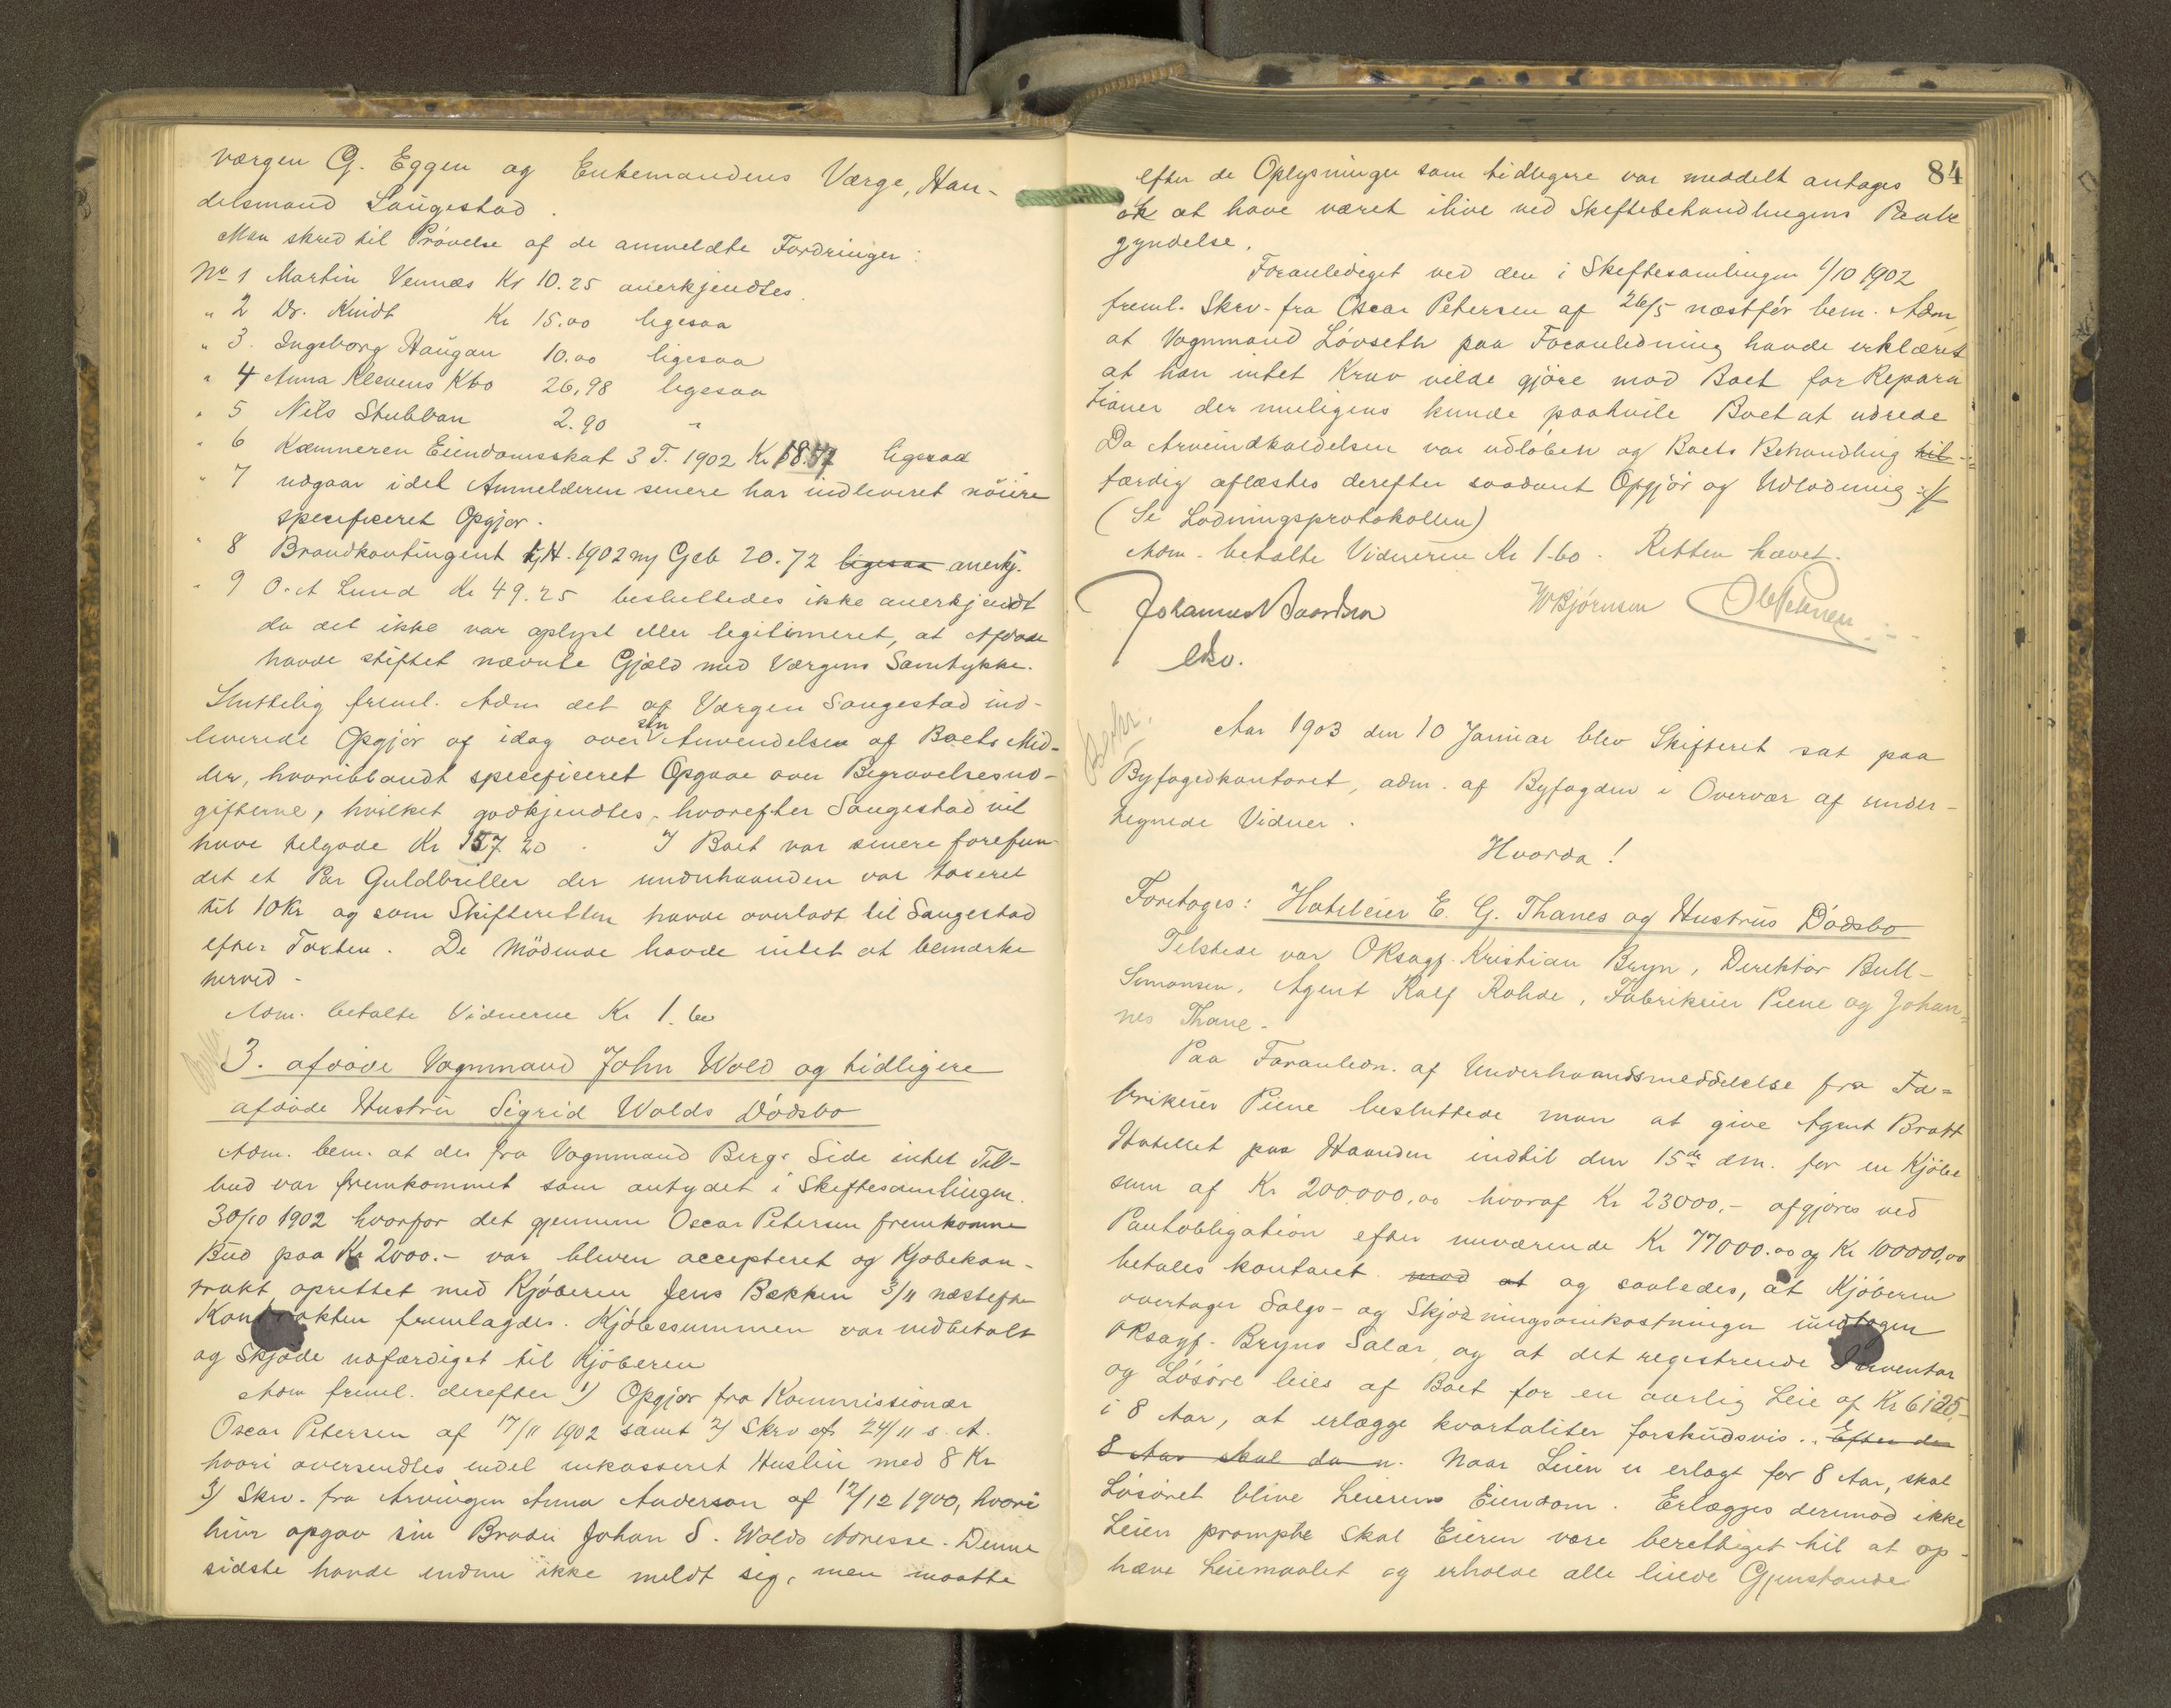 værgen G. Eggen og Enkemandens Værge, Han-
delsmand Saugestad.
Man skred til Prøvelse af de anmeldte Fordringer:
No 1 Martin Vennæs Kr 10.25 anerkjendtes
" 2 Dr. Knidt Kr 15.00 ligesaa
" 3. Ingeborg Haugan 10.00 ligesaa
" 4 Anna Klevens Kbo 26,98 ligesaa
" 5 Nils Stubban 2.90 "
" 6 Kæmneren Eiendomsskat 3 T. 1902 Kr 68.57 ligesaa
" 7 udgaar idet Anmelderen senere har indleveret nöiere
specificeret Opgjør.
" 8 Brandkontingent 1902 ny Geb 20.72 ligesaa anerkj.
" 9 O. A Lund Kr 49.25 besluttedes ikke anerkjendt
da det ikke var oplyst eller legitimeret, at Afdøde
havde stiftet nævnte Gjæld med Værgens Samtykke.
Sluttelig freml. Adm det af Værgen Saugestad ind-
leverede Opgjør af idag over sin Anvendelse af Boets Mid-
ler, hvoriblandt specificeret Opgave over Begravelsesud-
gifterne, hvilket godkjendtes, hvorefter Saugestad vil
have tilgode Kr 157.20. I Boet var senere forefun-
det et Par Guldbriller der underhaanden var taxeret
til 10 Kr og som Skifteretten havde overladt til Saugestad
efter Taxten. De Mødende havde intet at bemærke
herved -
Adm. betalte Vidnerne Kr 1.60
3. afdøde Vognmand John Wold og tidligere
afdøde Hustru Sigrid Wolds Dødsbo
Adm. bem. at der fra Vognmand Bergs Side intet Til-
bud var fremkommet som antydet i Skiftesamlingen
30/10 1902 hvorfor det gjennem Oscar Petersen fremkomne
Bud paa Kr 2000.- var bleven accepteret og Kjøbekon-
trakt oprettet med Kjøberen Jens Bækken 3/11 næstefter
Kontrakten fremlagdes. Kjøbesummen var indbetalt
og Skjøde udfærdiget til Kjøberen
Adm freml. derefter 1) Opgjør fra Kommissionær
Oscar Petersen af 17/11 1902 samt 2) Skrv af 24/11 s. A.
hvori oversendtes endel inkasseret Husleie med 8 Kr
3) Skrv. fra Arvingen Anna Anderson af 12/12 1900, hvori
hun opgav sin Broder Johan S. Wolds Adresse. Denne
sidste havde endnu ikke meldt sig, men maatte
84
efter de Oplysninger som tidligere var meddelt antages
at have været ilive ved Skiftebehandlingens
gyndelse.
Foranlediget ved den i Skiftesamlingen 1/10 1902
freml. Skrv. fra Oscar Petersen af 26/5 næstfør bem. Adm,
at Vognmand Løvseth paa Foranledning havde erklæret
at han intet Krav vilde gjøre mod Boet for Repara
tioner der muligens kunde paahvile Boet at udrede
Da Arveindkaldelsen var udløben og Boets Behandling til-
færdig aflæstes derefter saadant Opgjør og Udlodning
(Se Lodningsprotokollen)
Adm. betalte Vidnerne Kr 1.60. Retten hævet.
W Bjørnsen
cst.
Aar 1903 den 10 Januar blev Skifteret sat paa
Byfogedkontoret, adm. af Byfogden i Overvær af under-
tegnede Vidner.
Hvorda!
Foretoges: Hoteleier E. G. Thanes og Hustrus Dødsbo
Tilstede var OKsagf. Kristian Bryn, Direktør Bull-
Simonsen, Agent Ralf Rohde, Fabrikeier Piene og Johan-
nes Thane.
Paa Foranledn. af Underhaandsmeddelelse fra Fa-
brikeier Piene besluttede man at give Agent Bratt
Hotellet paa Haanden indtil den 15de dm. for en Kjøbe
sum af Kr 200000,00 hvoraf Kr 23000.- afgjøres ved
Pantobligation efter nuværende Kr 77000.00 og Kr 100000,00
betales kontant mod at og saaledes, at Kjøberen
overtager Salgs- og Skjødningsomkostninger undtagen
OKsagf. Bryns Salær, og at det registrerede Inventar
og Løsøre leies af Boet for en aarlig Leie af Kr 6125,-
i 8 Aar, at erlægge kvartaliter forskudsvis. Efter de
8 Aar skal da n. Naar Leien er erlagt for 8 Aar, skal
Løsøret blive Leierens Eiendom. Erlægges derimod ikke
Leien prompte skal Eieren være berettiget til at op-
hæve Leiemaalet og erholde alle leiede Gjenstande